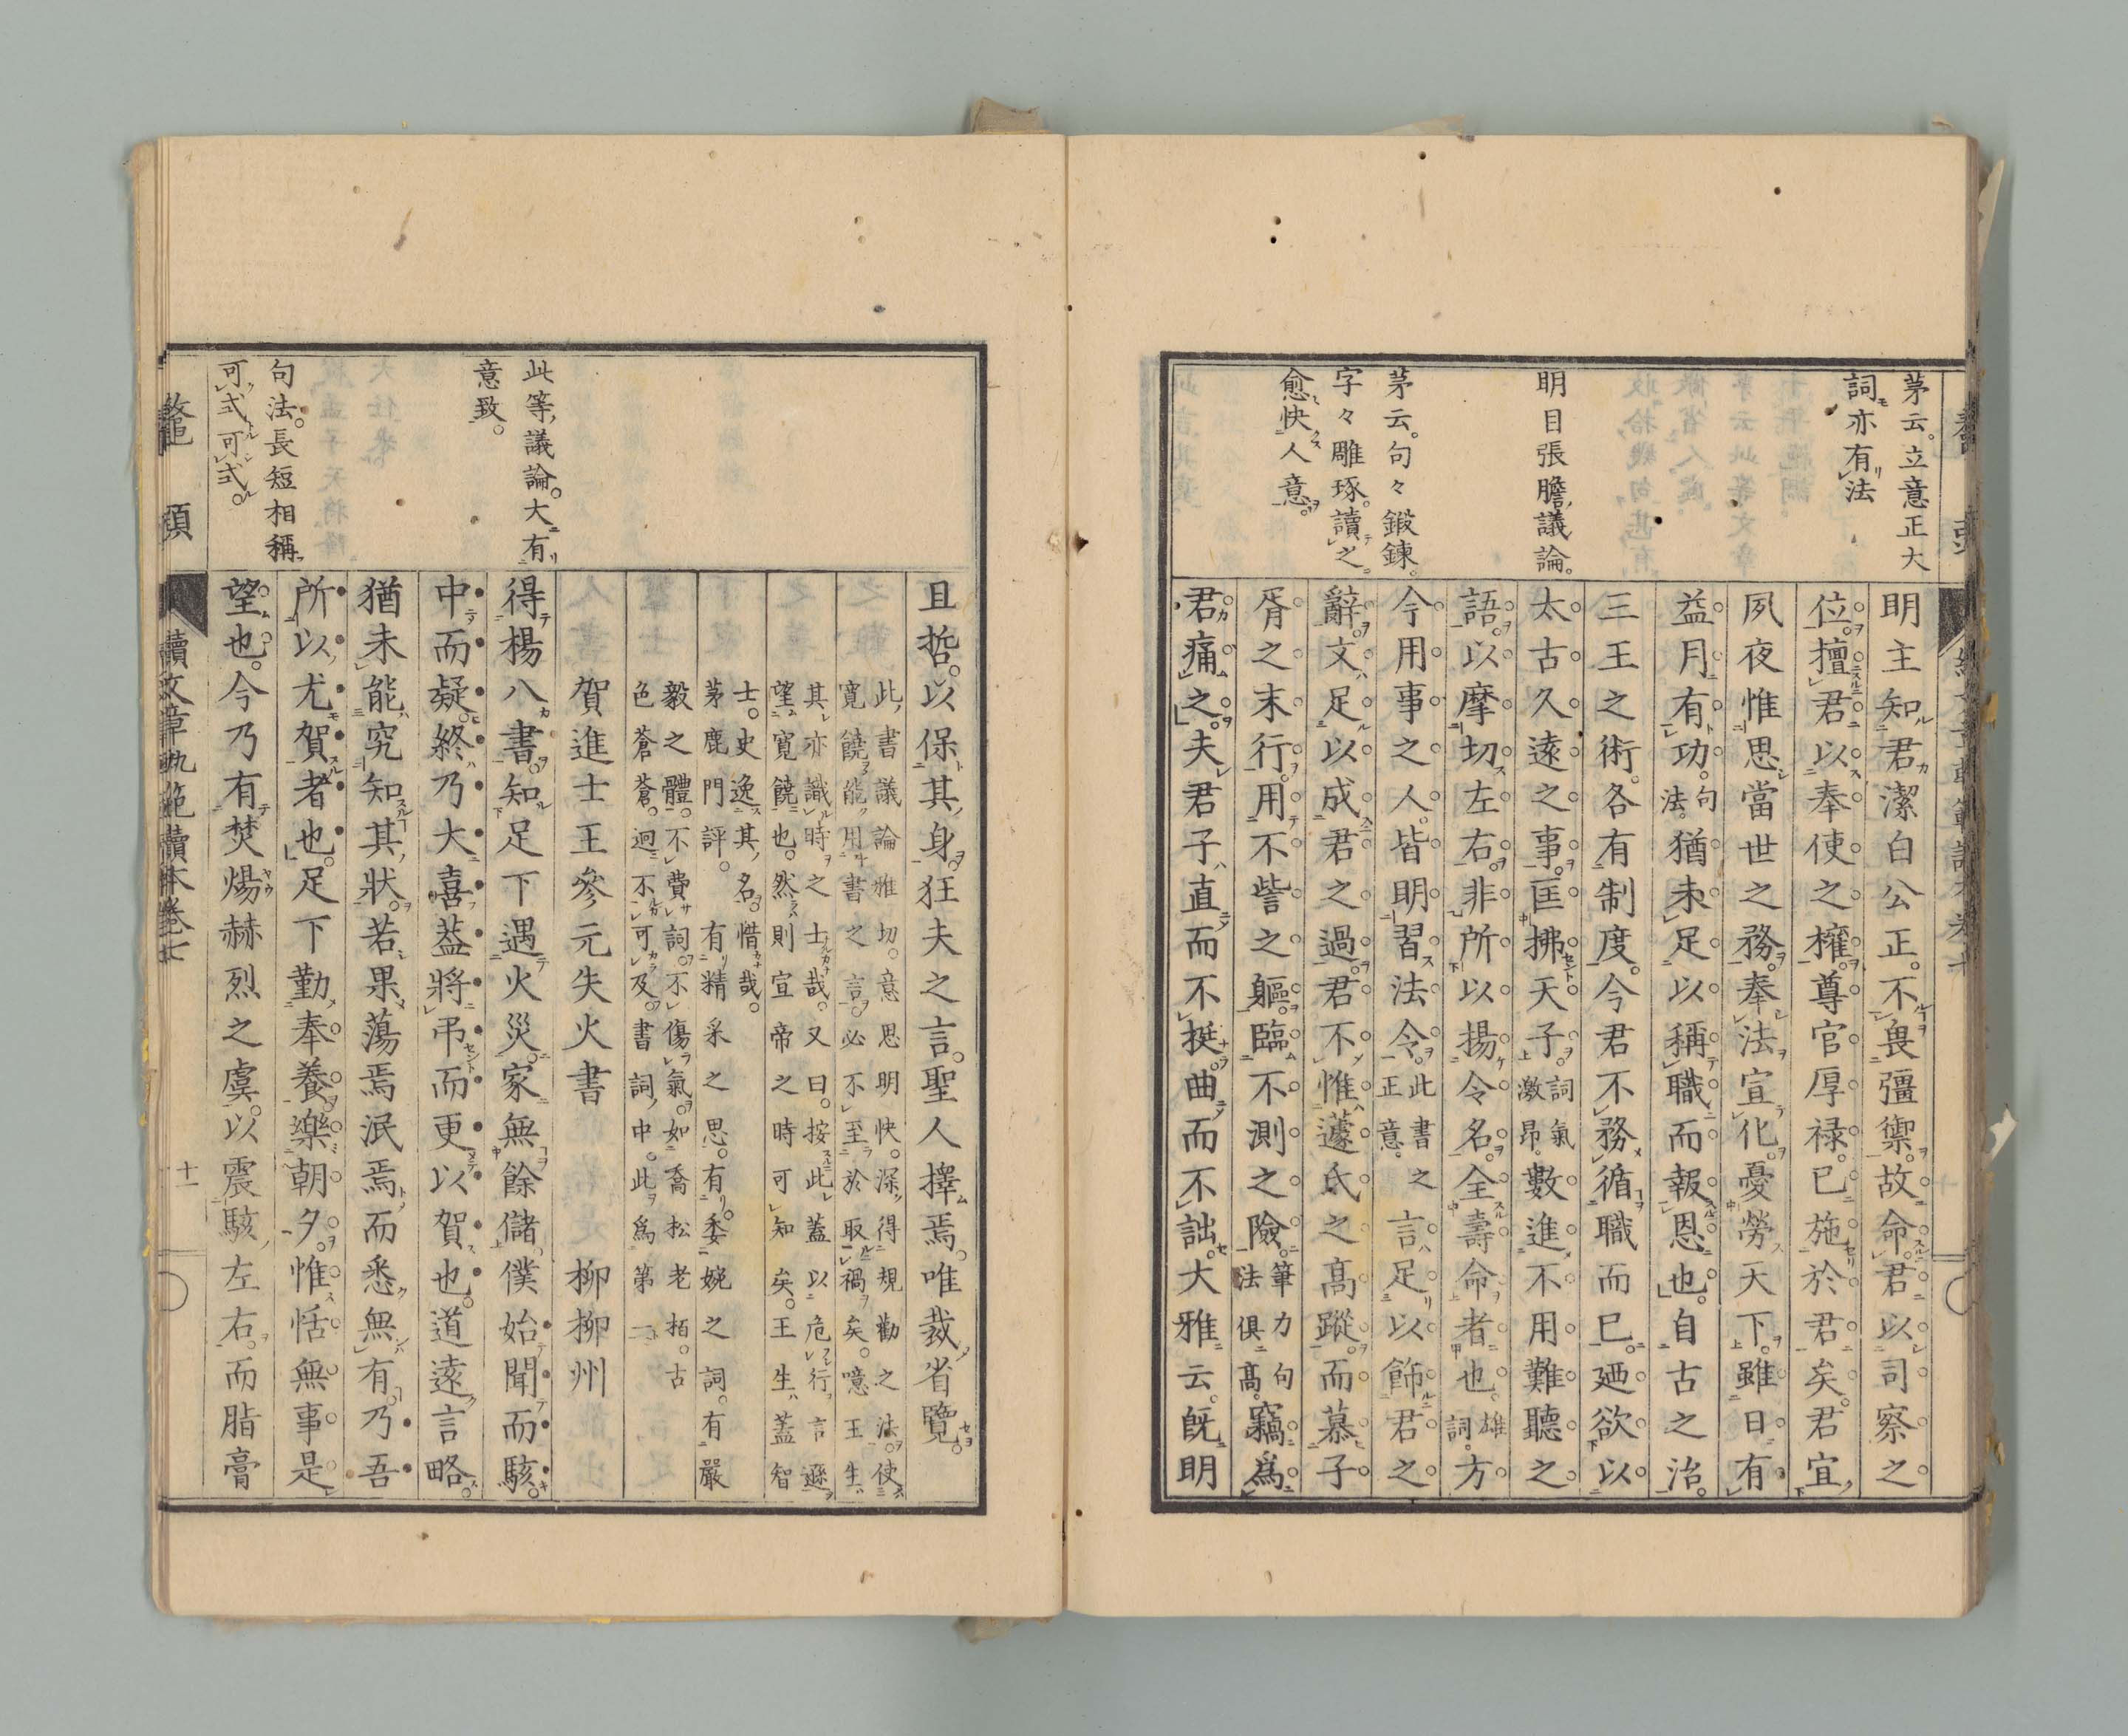 茅云。立意正大
詞亦有法
明目張膽議論。
茅云。句々鍛鍊。
字々雕琢。讀之
愈快人意。
明主知君潔白公正。不畏彊禦。故命君以司察之
位。擅君以奉使之權。尊官厚祿。已施於君矣。君宜
夙夜惟思當世之務。奉法宣化。憂勞天下。雖日有
益月有功。句法。猶未足以稱職而報恩也。自古之治。
三王之術。各有制度。今君不務循職而已。廼欲以
太古久遠之事。匡拂天子。詞氣激昂。數進不用難聽之
語。以摩切左右。非所以揚令名。全壽命者也。雄詞。方
今用事之人。皆明習法令。此書之正意。言足以飾君之
辭。文足以成君之過。君不惟蘧氏之高蹤。而慕子
胥之末行。用不訾之軀。臨不測之險。筆力句法俱高。竊爲
君痛之。夫君子直而不挺。曲而不詘。大雅云。既明
此等議論。大有
意致。
句法。長短相稱。
可式可式。
且哲。以保其身。狂夫之言。聖人擇焉。唯裁省覽。
此書議論雅切。意思明快。深得規勸之法。使
寬饒能用書之言。必不至於取禍矣。噫王生
其亦識時之士哉。又曰。按此蓋以危行言遜
望寬饒也。然則宣帝之時可知矣。王生蓋智
士。史逸其名。惜哉。
茅鹿門評。有精采之思。有委婉之詞。有嚴
毅之體。不費詞。不傷氣。如喬松老栢。古
色蒼蒼。迥不可及。書詞中。此爲第一
賀進士王參元失火書 柳柳州
得楊八書。知足下遇火災。家無餘儲。僕始聞而駭。
中而疑。終乃大喜。蓋將弔而更以賀也。道遠言略。
猶未能究知其狀。若果蕩焉泯焉而悉無有。乃吾
所以尤賀者也。足下勤奉養。樂朝夕。惟恬無事是
望也。今乃有焚煬赫烈之虞。以震駭左右。而脂膏
鼇頭
讀文章軌範讀本卷七
十一